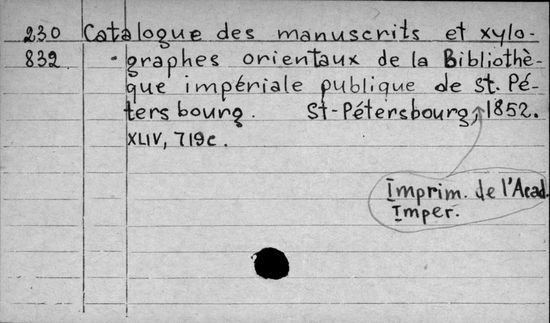 230 Catalogue des manuscrits et xylo-
832 graphes orientaux de la Bibliothè-
que impériale publique de St. Pé-
tersbourg. St-Pétersbourg, 1852.
XLIV, 719c.
Imprim. de l'Acad.
Imper.